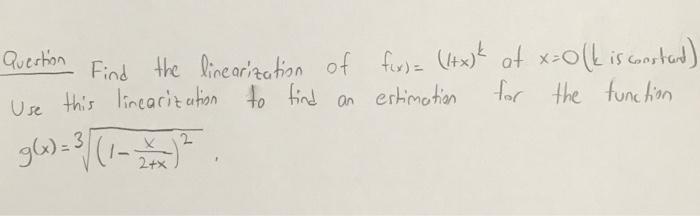 Question Find the linearization of f(x) = (1+x)^k at x=0 (k is constant)
Use this linearization to find an estimation for the function
g(x) = ∛((1 - x/(2+x))^2) .